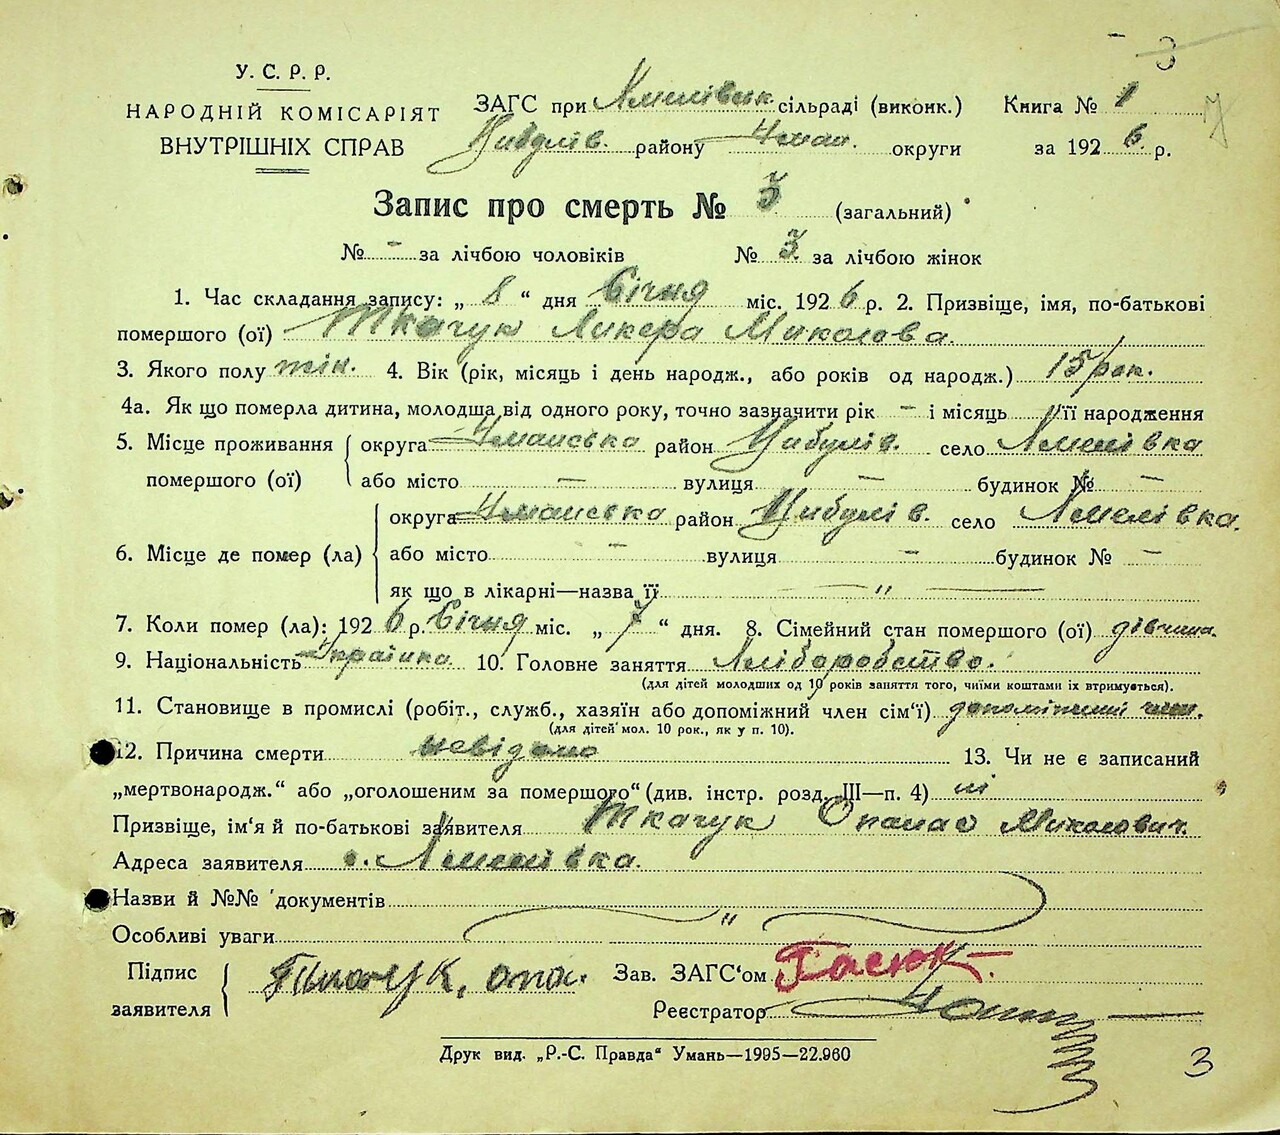 3
У. С. Р. Р.
НАРОДНІЙ КОМІСАРІЯТ
ВНУТРІШНІХ СПРАВ
ЗАГС при Хмелівськ. сільраді (виконк.) Книга № 1
Цибулів. району Уман. округи за 1926 р.
7
Запис про смерть № 3 (загальний)
№ - за лічбою чоловіків № 3 за лічбою жінок
1. Час складання запису: „ 8 “ дня Січня міс. 1926 р. 2. Призвіще, імя, по-батькові
помершого (ої) Ткачук Ликера Миколова
3. Якого полу жін. 4. Вік (рік, місяць і день народж., або років од народж.) 15 рок.
4а. Як що померла дитина, молодша від одного року, точно зазначити рік - і місяць " її народження
5. Місце проживання помершого (ої) округа Уманська район Цибулів. село Хмелівка
або місто — вулиця — будинок № —
6. Місце де помер (ла) округа Уманська район Цибулів. село Хмелівка.
або місто — вулиця — будинок № —
як що в лікарні—назва її — " —
7. Коли помер (ла): 1926 р. Січня міс. „ 7 “ дня. 8. Сімейний стан помершого (ої) дівчина.
9. Національність Українка 10. Головне заняття Хліборобство.
(для дітей молодших од 10 років заняття того, чиїми коштами їх втримується).
11. Становище в промислі (робіт., служб., хазяїн або допоміжний член сім'ї) допоміжний член.
(для дітей мол. 10 рок., як у п. 10).
12. Причина смерти невідомо 13. Чи не є записаний
„мертвонародж.“ або „оголошеним за помершого“ (див. інстр. розд. III—п. 4) ні
Призвіще, ім'я й по-батькові заявителя Ткачук Опанас Миколович
Адреса заявителя с. Хмелівка.
Назви й №№ документів
"
Особливі уваги
Підпис заявителя Ткачук, опа. Зав. ЗАГС'ом Гасюк
Реєстратор
Друк вид. „Р.-С. Правда“ Умань—1995—22.960
3